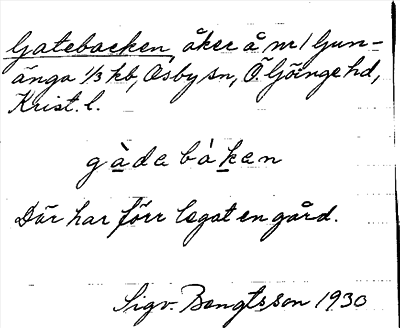 Gatebacken, åker å nr 1 Ljun-
änga 1/3 hb, Osby sn, Ö. Göinge hd,
Krist. l.
gàdebàken
Där har förr legat en gård.
Sigv. Bengtsson 1930